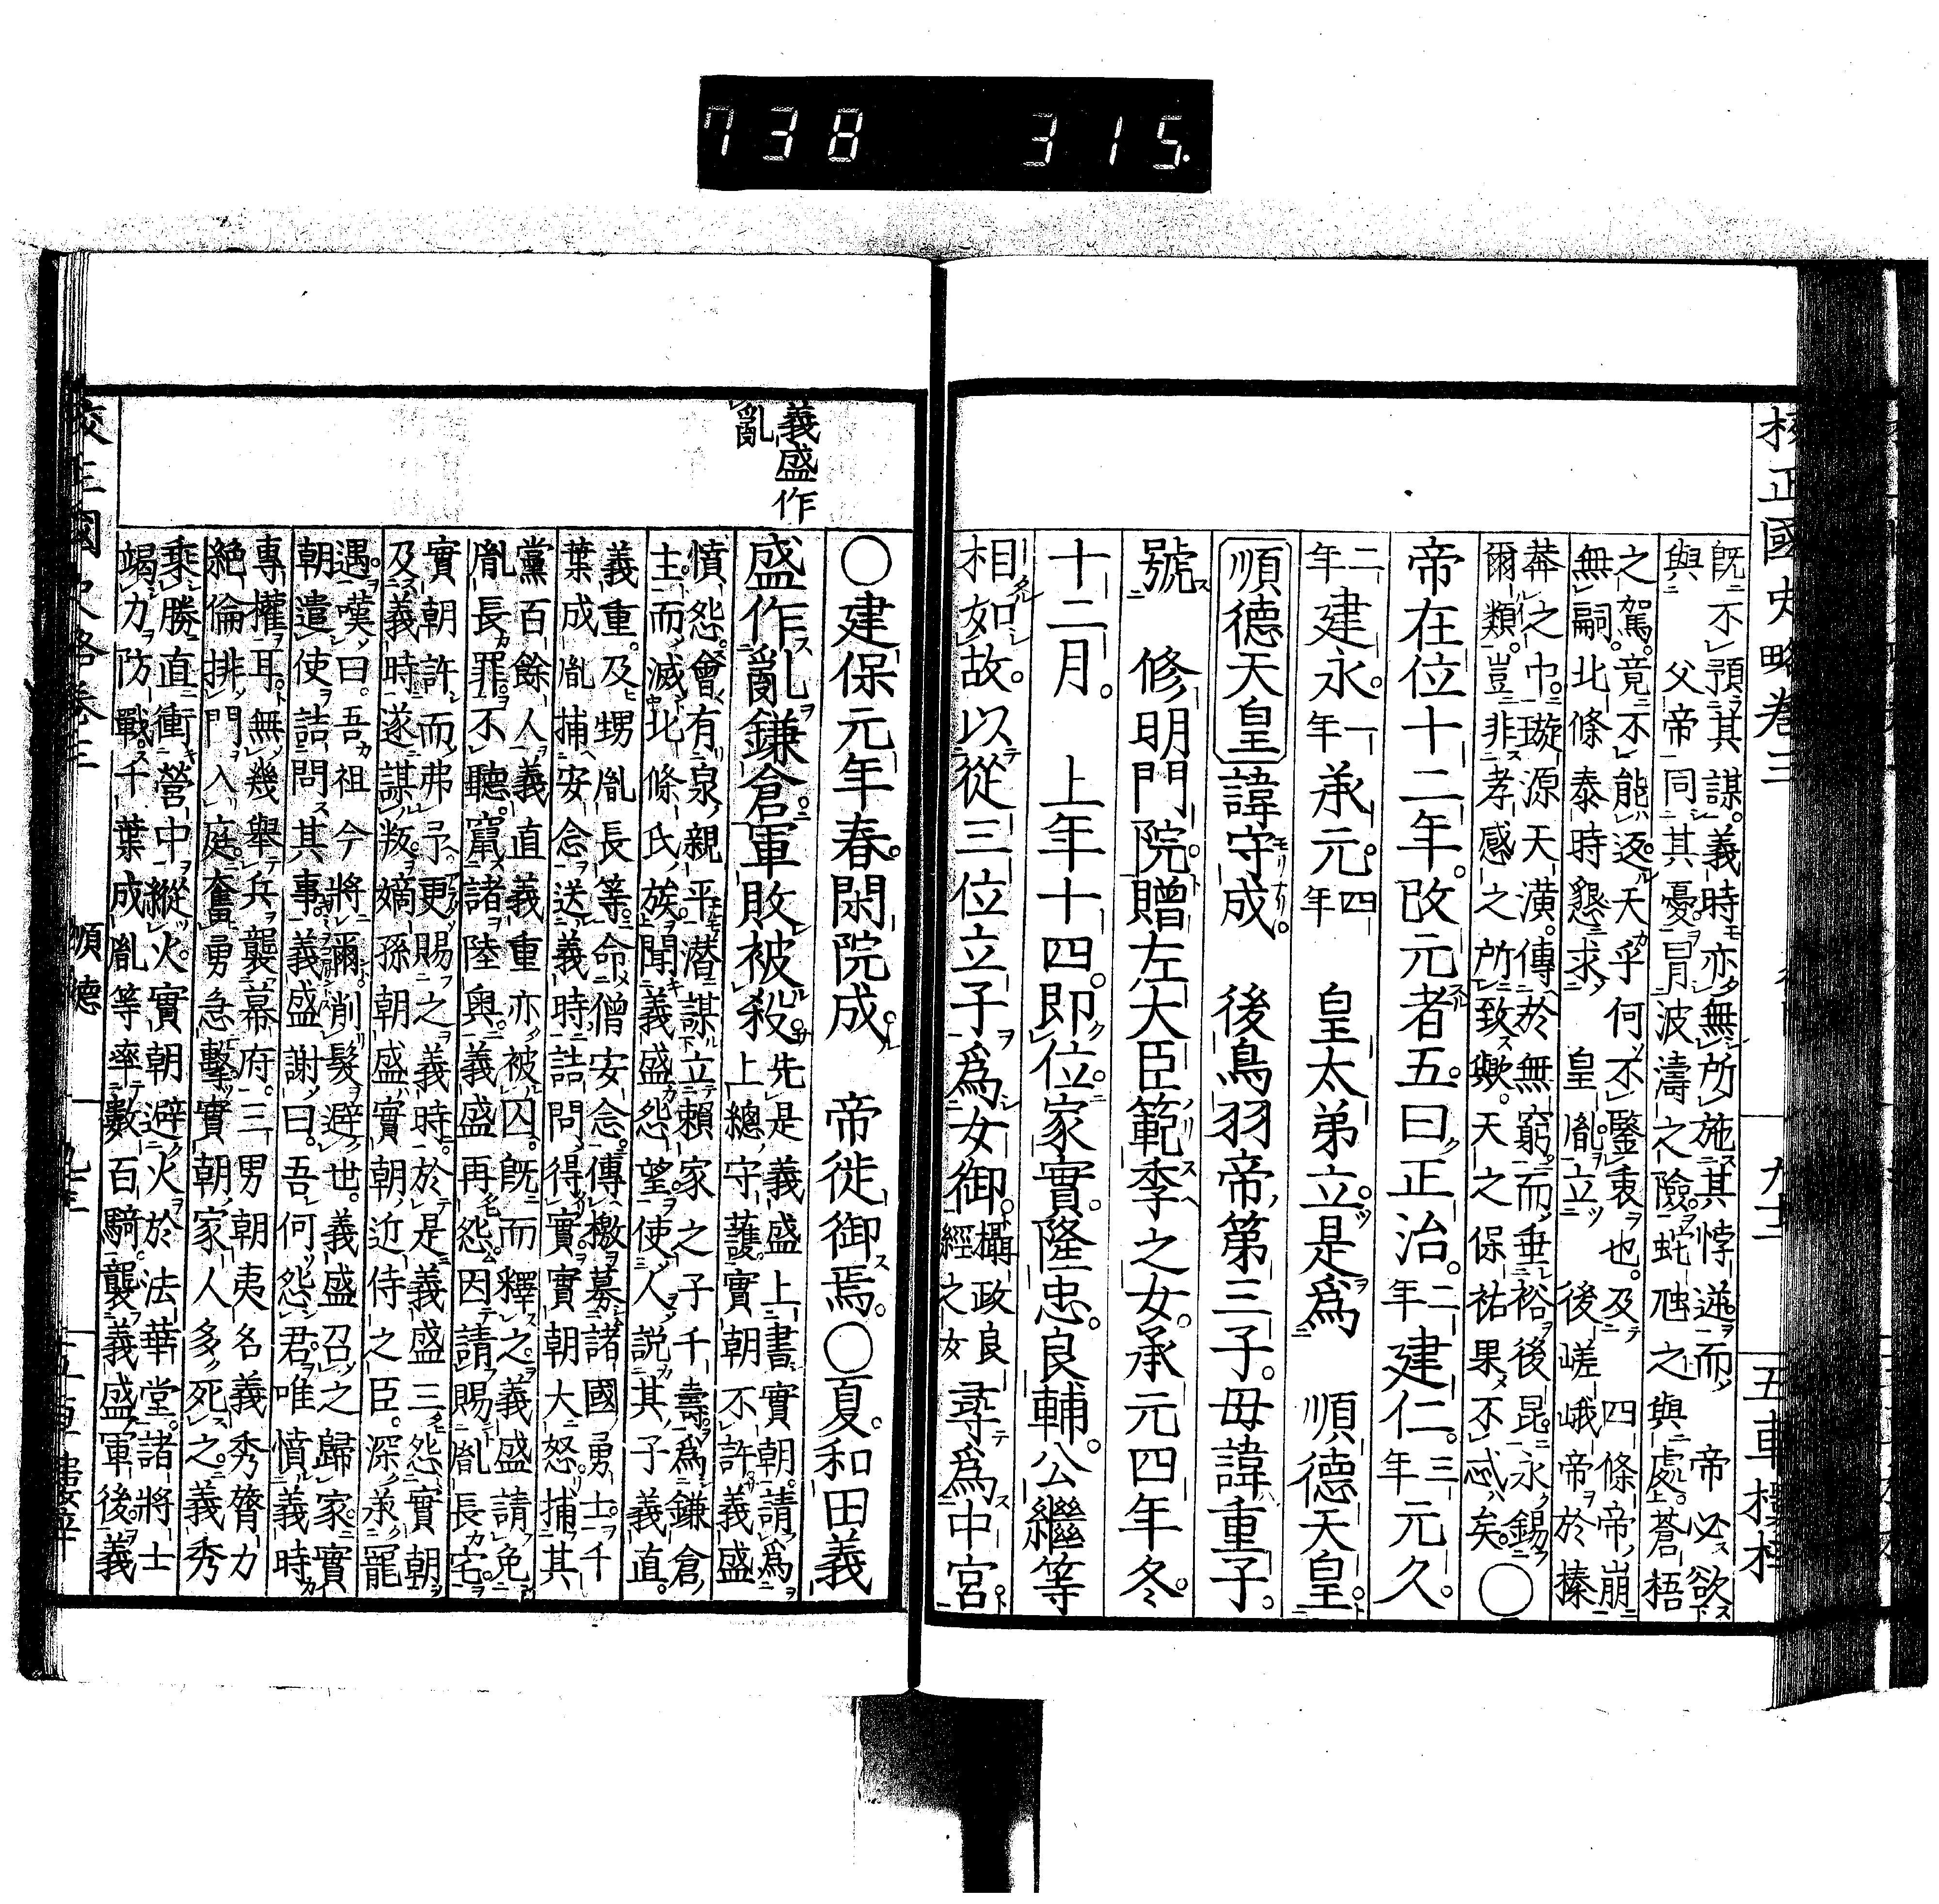 738 315.
校正國史略卷三 九十二 五車樓梓
既不預其謀。義時亦無所施其悖逆而帝必欲
與父帝同其憂。冒波濤之險蛇虺之與處。蒼梧
之駕。竟不能返。天乎何不鑒衷也。及四條帝崩
無嗣。北條泰時懇求皇胤立後嵯峨帝於榛
莽之巾。璇源天潢。傳於無窮。而垂裕後昆。永錫
爾類。豈非孝感之所致歟。天之保祐果不忒矣。○
帝在位十二年。改元者五。曰正治。二年建仁。三年元久。
二年建永。一年承元。四年 皇太弟立。是爲 順德天皇。
順德天皇諱守成。 後鳥羽帝第三子。母諱重子。
號 修明門院。贈左大臣範季之女。承元四年冬。
十二月。 上年十四。即位。家實。隆忠。良輔。公繼等
相如故。以從三位立子爲女御。攝政良經之女尋爲中宮
義盛作
亂
○建保元年春。閑院成。 帝徙御焉。○夏。和田義
盛作亂鎌倉。軍敗被殺。先是義盛上書實朝。請爲
上總守護。實朝不許。義盛
憤怨。會有泉親平潛謀立賴家之子千壽。爲鎌倉
主。而滅北條氏族。聞義盛怨望。使人説其子義直。
義重。及甥胤長等。命僧安念。傳檄募諸國勇士。千
葉成胤捕安念。送義時。詰問得實。實朝大怒。捕其
黨百餘人。義直義重亦被囚。既而釋之。義盛請免
胤長罪。不聽。竄諸陸奧。義盛再怨。因請賜胤長宅。
實朝許而弗予。更賜之義時。於是義盛三怨實朝
及義時。遂謀叛。嫡孫朝盛。實朝近侍之臣。深承寵
遇。嘆曰。吾祖今將爾。削髮避世。義盛召之歸家。實
朝遣使詰問其事。義盛謝曰。吾何怨君。唯憤義時
專權耳。無幾舉兵襲幕府。三男朝夷名義秀膂力
絕倫。排門入庭。奮勇急擊。實朝家人多死之。義秀
乘勝直衝營中。縱火。實朝避火於法華堂。諸將士
竭力防戰。千葉成胤等率數百騎。襲義盛軍後。義
順德